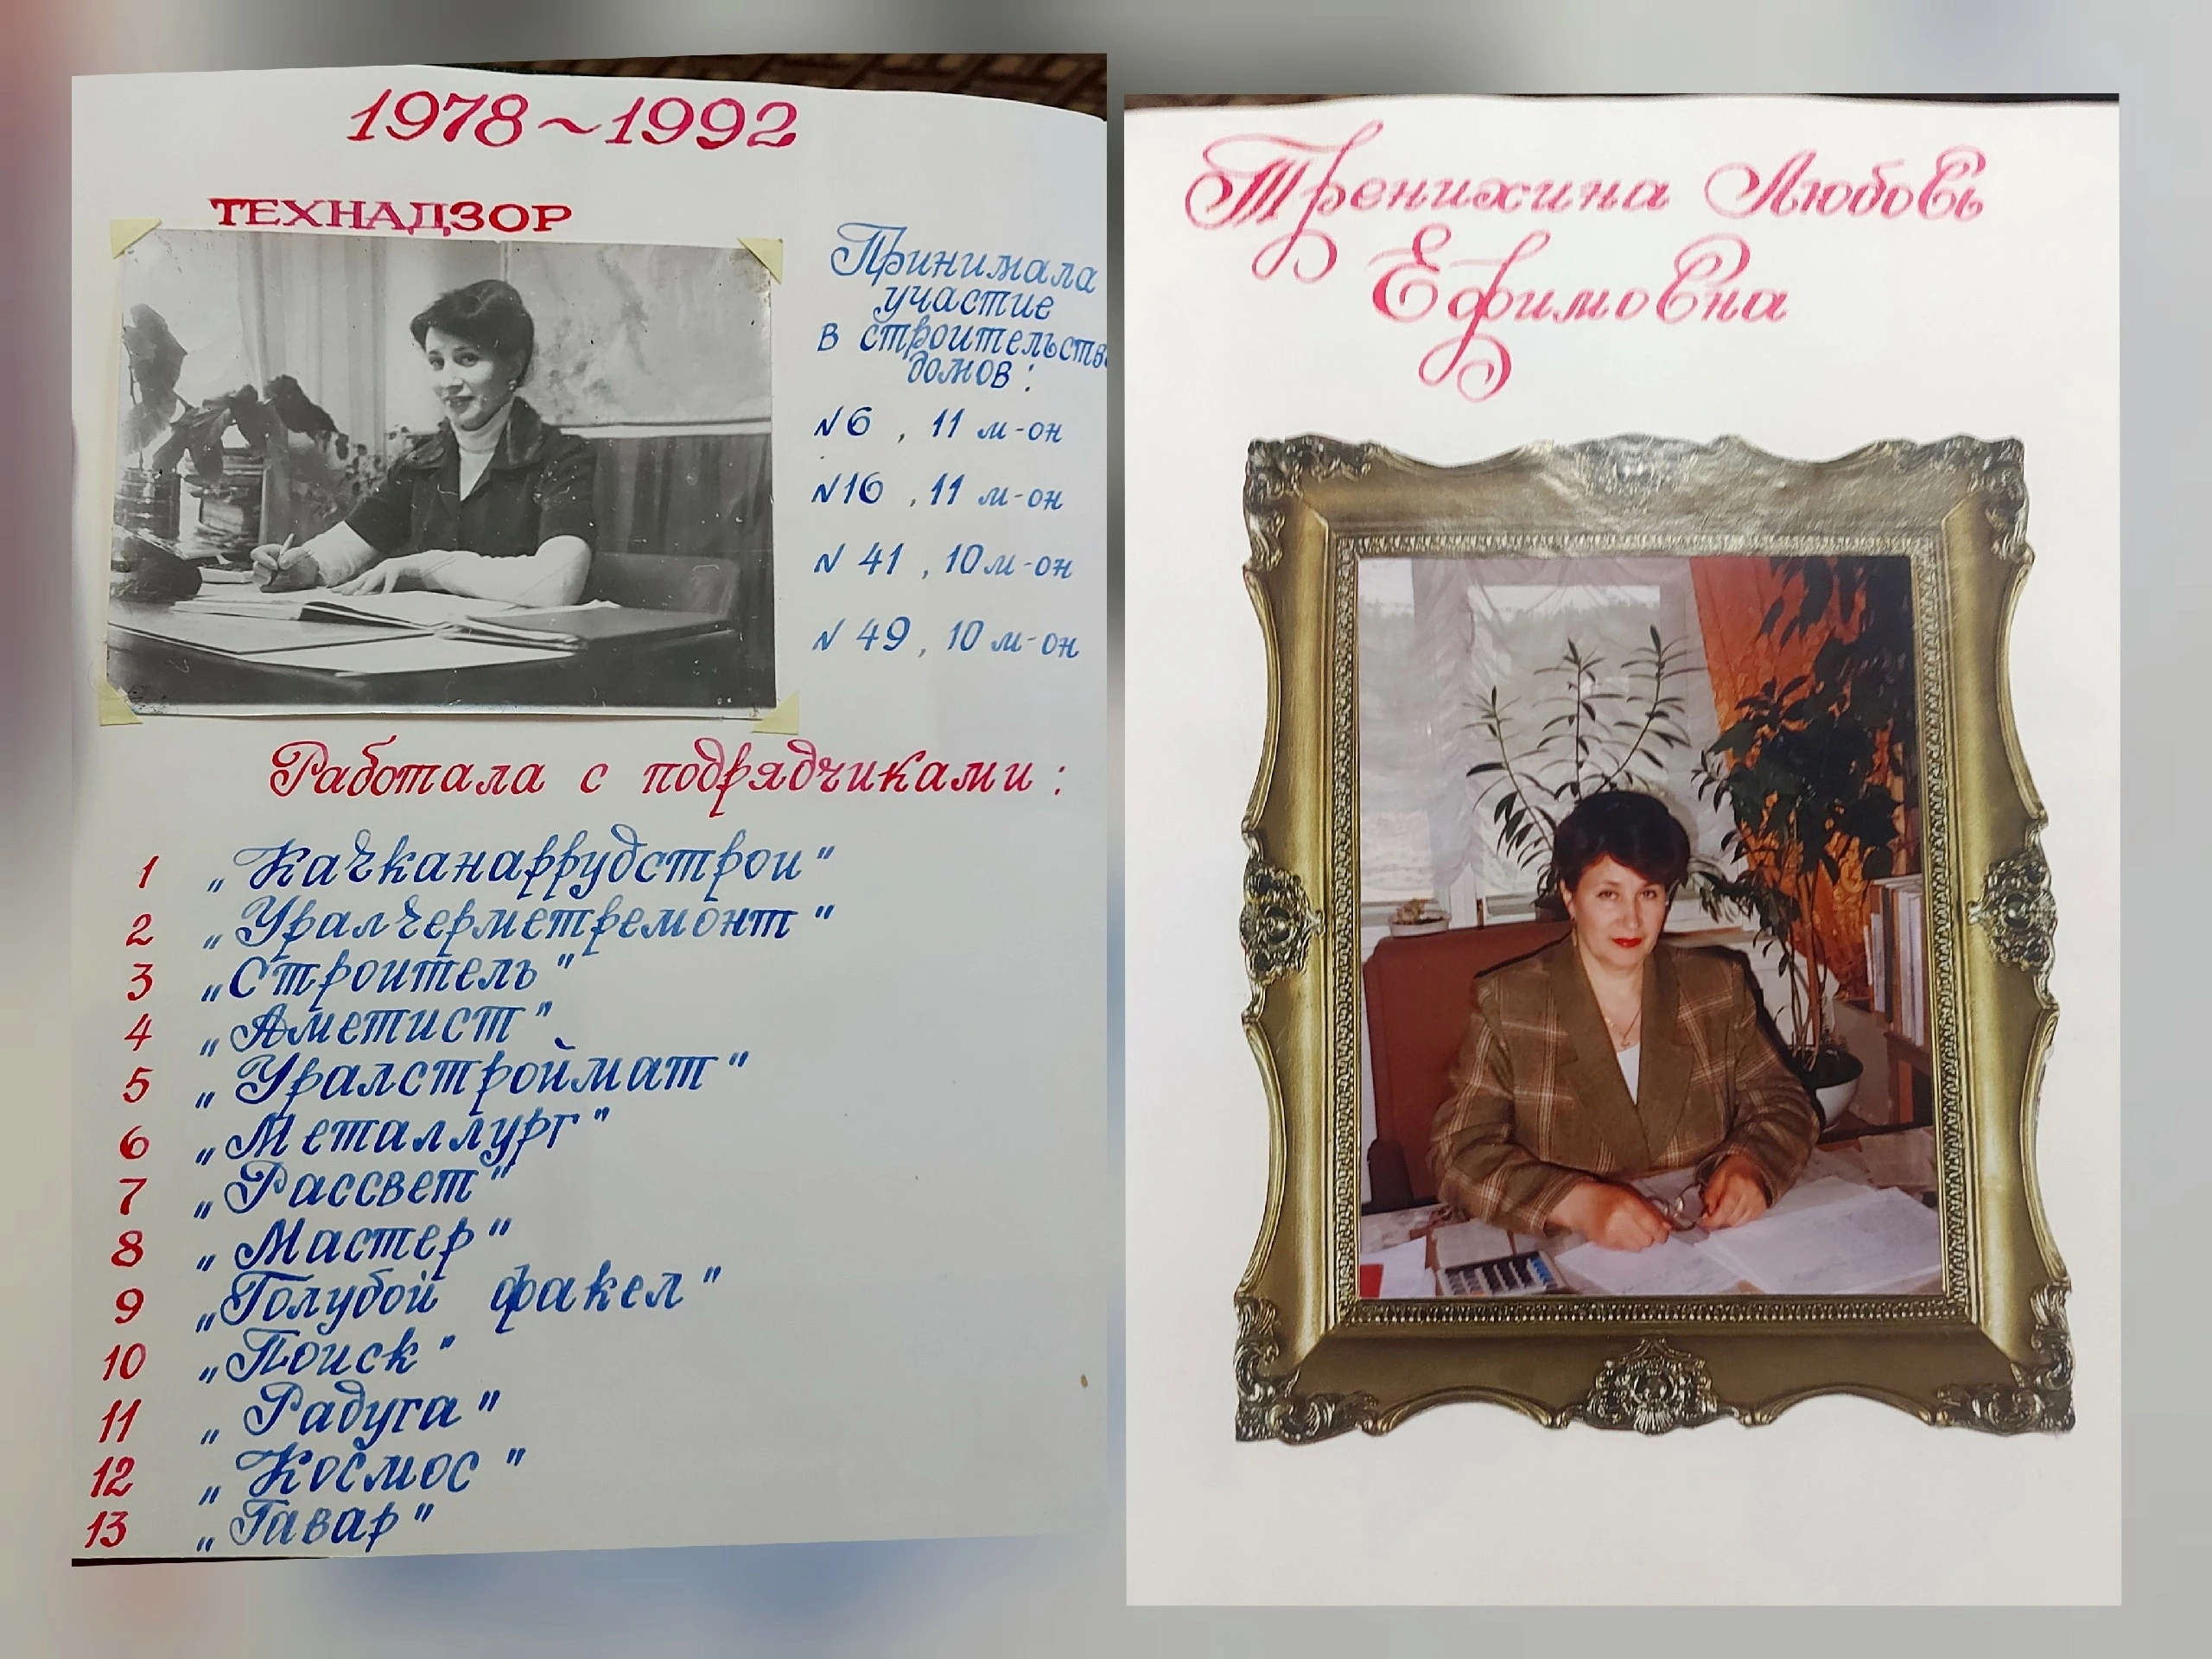 1978~1992
ТЕХНАДЗОР
Принимала
участие
в строительств
домов:
N6, 11 м-он
N16, 11 м-он
N 41, 10 м-он
N 49, 10 м-он
Работала с подрядчиками:
1 „Качканаррудстрои"
2 „Уралчерметремонт"
3 „Строитель"
4 „Аметист"
5 „Уралстроймат"
6 „Металлург"
7 „Рассвет"
8 „Мастер"
9 „Голубой факел"
10 „Поиск"
11 „Радуга"
12 „Космос"
13 „Гавар"
Тренихина Любовь
Ефимовна